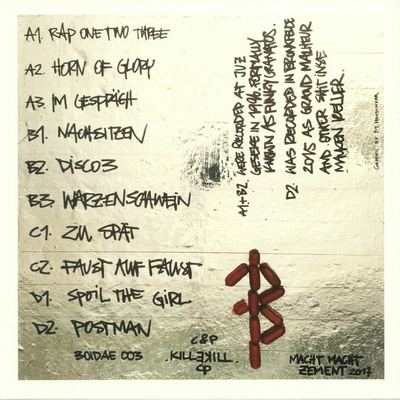 A1. RAP ONE TWO THREE
A2. HORN OF GLORY
A3. IM GESPRÄCH
B1. NACHSITZEN
B2. DISCO3
B3. WARZENSCHWEIN
C1. ZU SPÄT
C2. FAUST AUF FAUST
D1. SPOIL THE GIRL
D2. POSTMAN
BOIDAE 003
C&P
KILLEKILL
MACHT MACHT
ZEMENT 2017
A1+B2 WERE RECORDED AT JUZ
IN 1996. FORMALLY
KNOWN AS FUNKY
D2 WAS RECORDED IN
2015 AS GRAND MALHEUR
AND OTHER SHIT INSE
KELLER.
BY M.